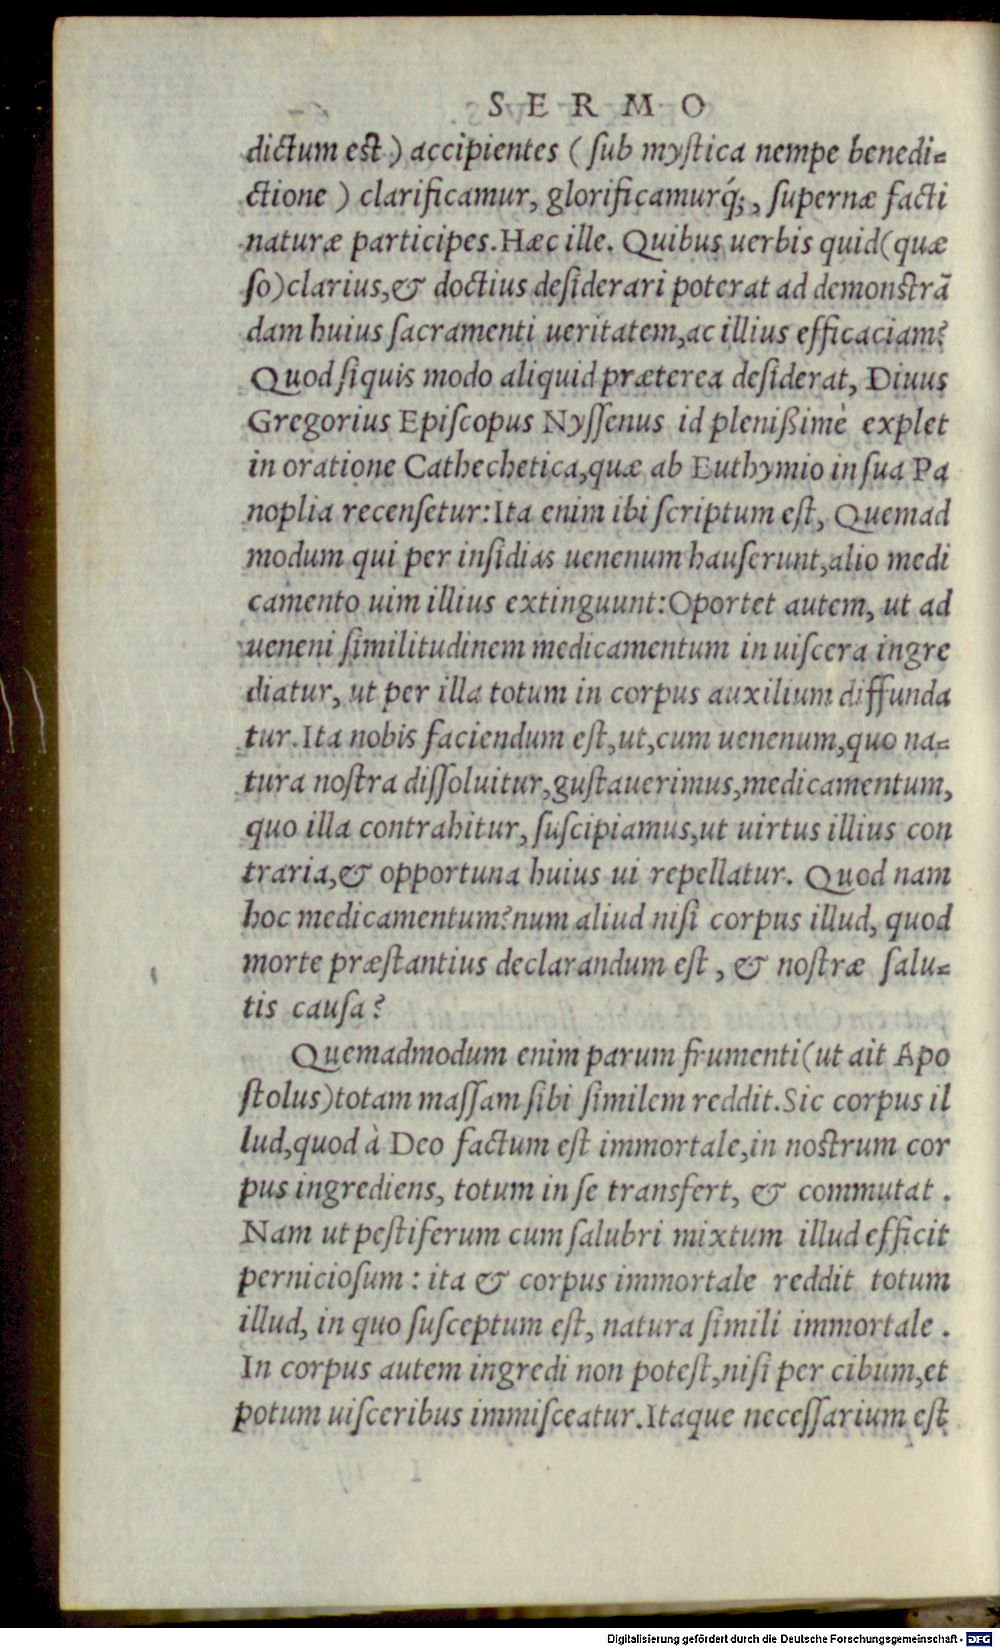 SERMO
dictum est) accipientes (ſub myſtica nempe benedi-
ctione) clarificamur, glorificamurq́;, ſupernæ facti
naturæ participes. Hæc ille. Quibus uerbis quid (quæ
ſo) clarius, & doctius deſiderari poterat ad demonſtrā
dam huius ſacramenti ueritatem, ac illius efficaciam?
Quod ſiquis modo aliquid præterea deſiderat, Diuus
Gregorius Epiſcopus Nyſſenus id pleniſsimè explet
in oratione Cathechetica, quæ ab Euthymio in ſua Pa
noplia recenſetur: Ita enim ibi ſcriptum eſt, Quemad
modum qui per inſidias uenenum hauſerunt, alio medi
camento uim illius extinguunt: Oportet autem, ut ad
ueneni ſimilitudinem medicamentum in uiſcera ingre
diatur, ut per illa totum in corpus auxilium diffunda
tur. Ita nobis faciendum eſt, ut, cum uenenum, quo na-
tura noſtra diſſoluitur, guſtauerimus, medicamentum,
quo illa contrahitur, ſuſcipiamus, ut uirtus illius con
traria, & opportuna huius ui repellatur. Quod nam
hoc medicamentum? num aliud niſi corpus illud, quod
morte præſtantius declarandum eſt, & noſtræ ſalu-
tis cauſa?
Quemadmodum enim parum frumenti (ut ait Apo
ſtolus) totam maſſam ſibi ſimilem reddit. Sic corpus il
lud, quod à Deo factum eſt immortale, in noſtrum cor
pus ingrediens, totum in ſe transfert, & commutat.
Nam ut peſtiferum cum ſalubri mixtum illud efficit
pernicioſum: ita & corpus immortale reddit totum
illud, in quo ſuſceptum eſt, natura ſimili immortale.
In corpus autem ingredi non poteſt, niſi per cibum, et
potum uiſceribus immiſceatur. Itaque neceſſarium eſt
Digitalisierung gefördert durch die Deutsche Forschungsgemeinschaft - DFG